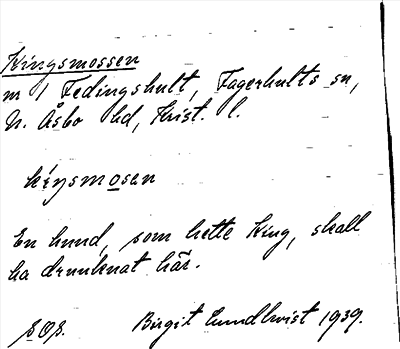 Kingsmossen
m i Fedingshult, Fagerhults sn,
N. Åsbo hd, Krist. l.
En hund, som hette King, skall
ha drunknat här.
Birgit Lundkvist 1939.